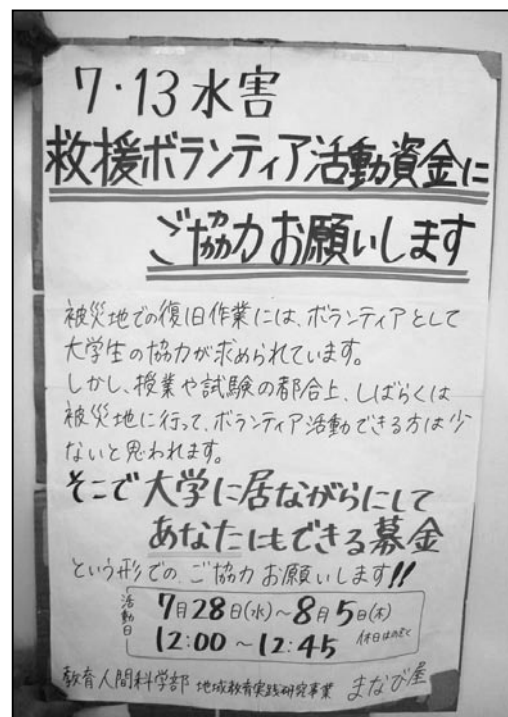 7・13水害
救援ボランティア活動資金に
ご協力お願いします
被災地での復旧作業には、ボランティアとして
大学生の協力が求められています。
しかし、授業や試験の都合上、しばらくは
被災地に行って、ボランティア活動できる方は少
ないと思われます。
そこで大学に居ながらにして
あなたにもできる募金
という形での、ご協力お願いします!!
活動日
7月28日(水)~8月5日(木)
12:00~12:45 休日はのぞく
教育人間科学部 地域教育実践研究事業 まなび屋